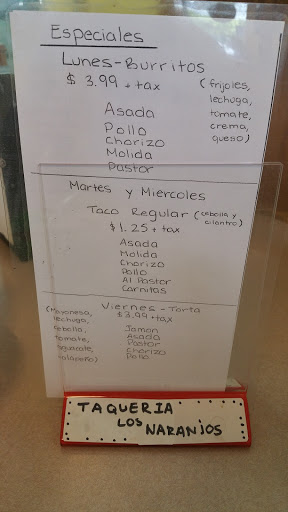 Especiales
Lunes-Burritos
$ 3.99 + tax
(frijoles,
lechuga,
tomate,
crema,
queso)
Asada
Pollo
Chorizo
Molida
Pastor
Martes y Miercoles
Taco Regular (cebolla y
cilantro)
$1.25 + tax
Asada
Molida
Chorizo
Pollo
Al Pastor
Carnitas
Viernes - Torta
$3.99 + tax
(Mayonesa,
lechuga,
cebolla,
tomate,
aguacate,
jalapeño)
Jamon
Asada
Pastor
Chorizo
Pollo
TAQUERIA
LOS NARANJOS